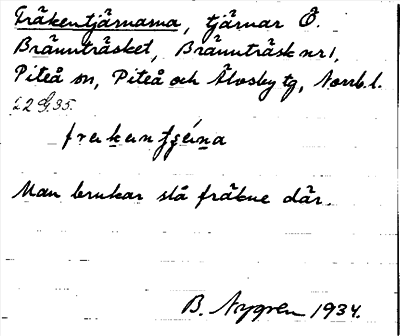 Fräkentjärnarna, tjärnar Ö.
Brännträsket, Brännträsk nr 1,
Piteå sn, Piteå och Älvsby tg, Norrb. l.
22 G. 35.
Man brukar slå fräkne där.
B. Nygren 1934.